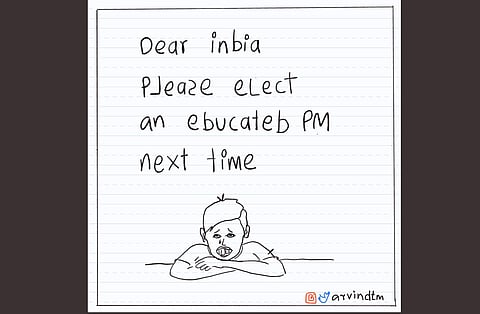 Dear inbia
Please elect
an ebucateb PM
next time
arvindtm